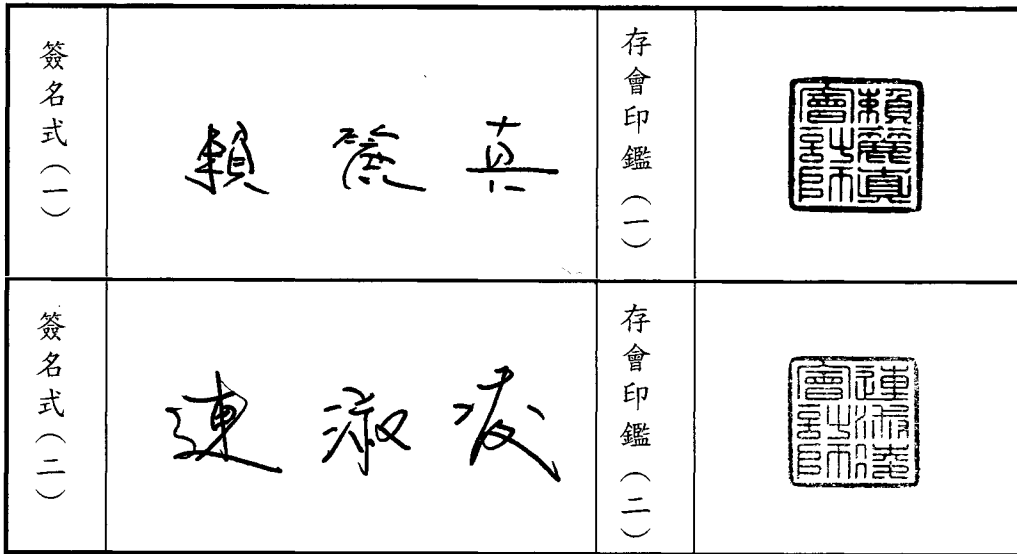 簽名式(一)
賴麗真
存會印鑑(一)
賴麗真會計師
簽名式(二)
連淑凌
存會印鑑(二)
連淑凌會計師